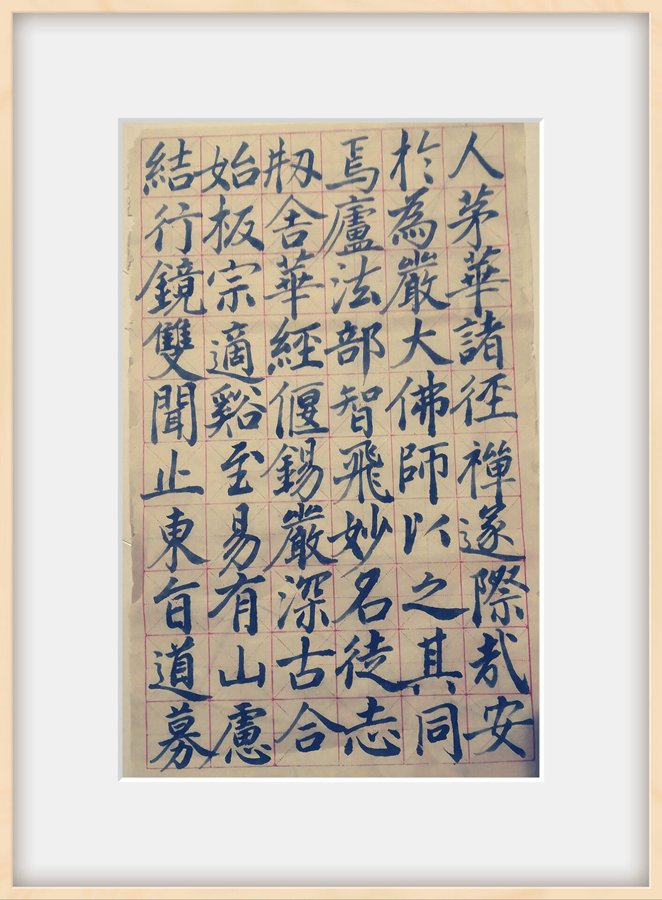 人於焉刱始結
茅為廬舍板行
華嚴法華宗鏡
諸大部經適雙
徑佛智偃谿聞
禪師飛錫至止
遂以妙嚴易東
際之名深有旨
哉其徒古山道
安同志合慮募